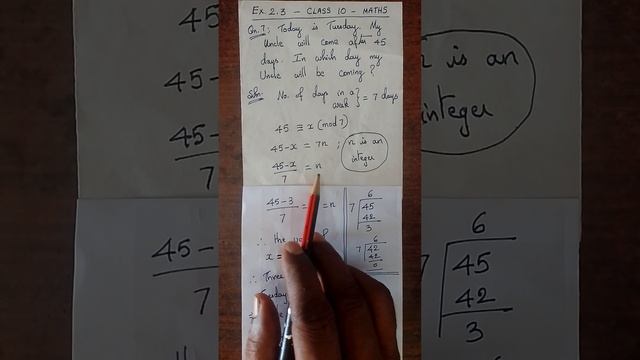 Ex 2.3 - CLASS 10 - MATHS
Qn.7: Today is Tuesday. My
Uncle will come after 45
days. In which day my
Uncle will be coming?
Soln: No. of days in a week } = 7 days
45 ≡ x (mod 7)
45-x = 7n ; n is an integer
45-x/7 = n
45-3/7 = = n
∴ the
x =
∴ Three
6
7 45
42
3
6
7 42
42
0
45
45-
45-
7
n is an
integer
45-
7
6
7 45
42
3